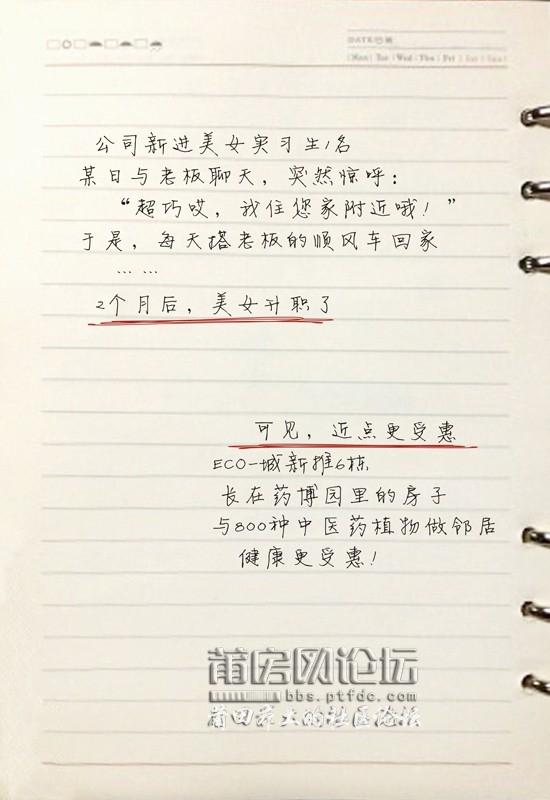 DATE
Mon Tue Wed Thu Fri Sat Sun
公司新进美女实习生1名
某日与老板聊天，突然惊呼：
“超巧哎，我住您家附近哦！”
于是，每天搭老板的顺风车回家
……
2个月后，美女升职了
可见，近点更受惠
ECO-城新推6栋
长在药博园里的房子
与800种中医药植物做邻居
健康更受惠！
莆房网论坛
bbs.ptfdc.com
莆田本土的社区论坛